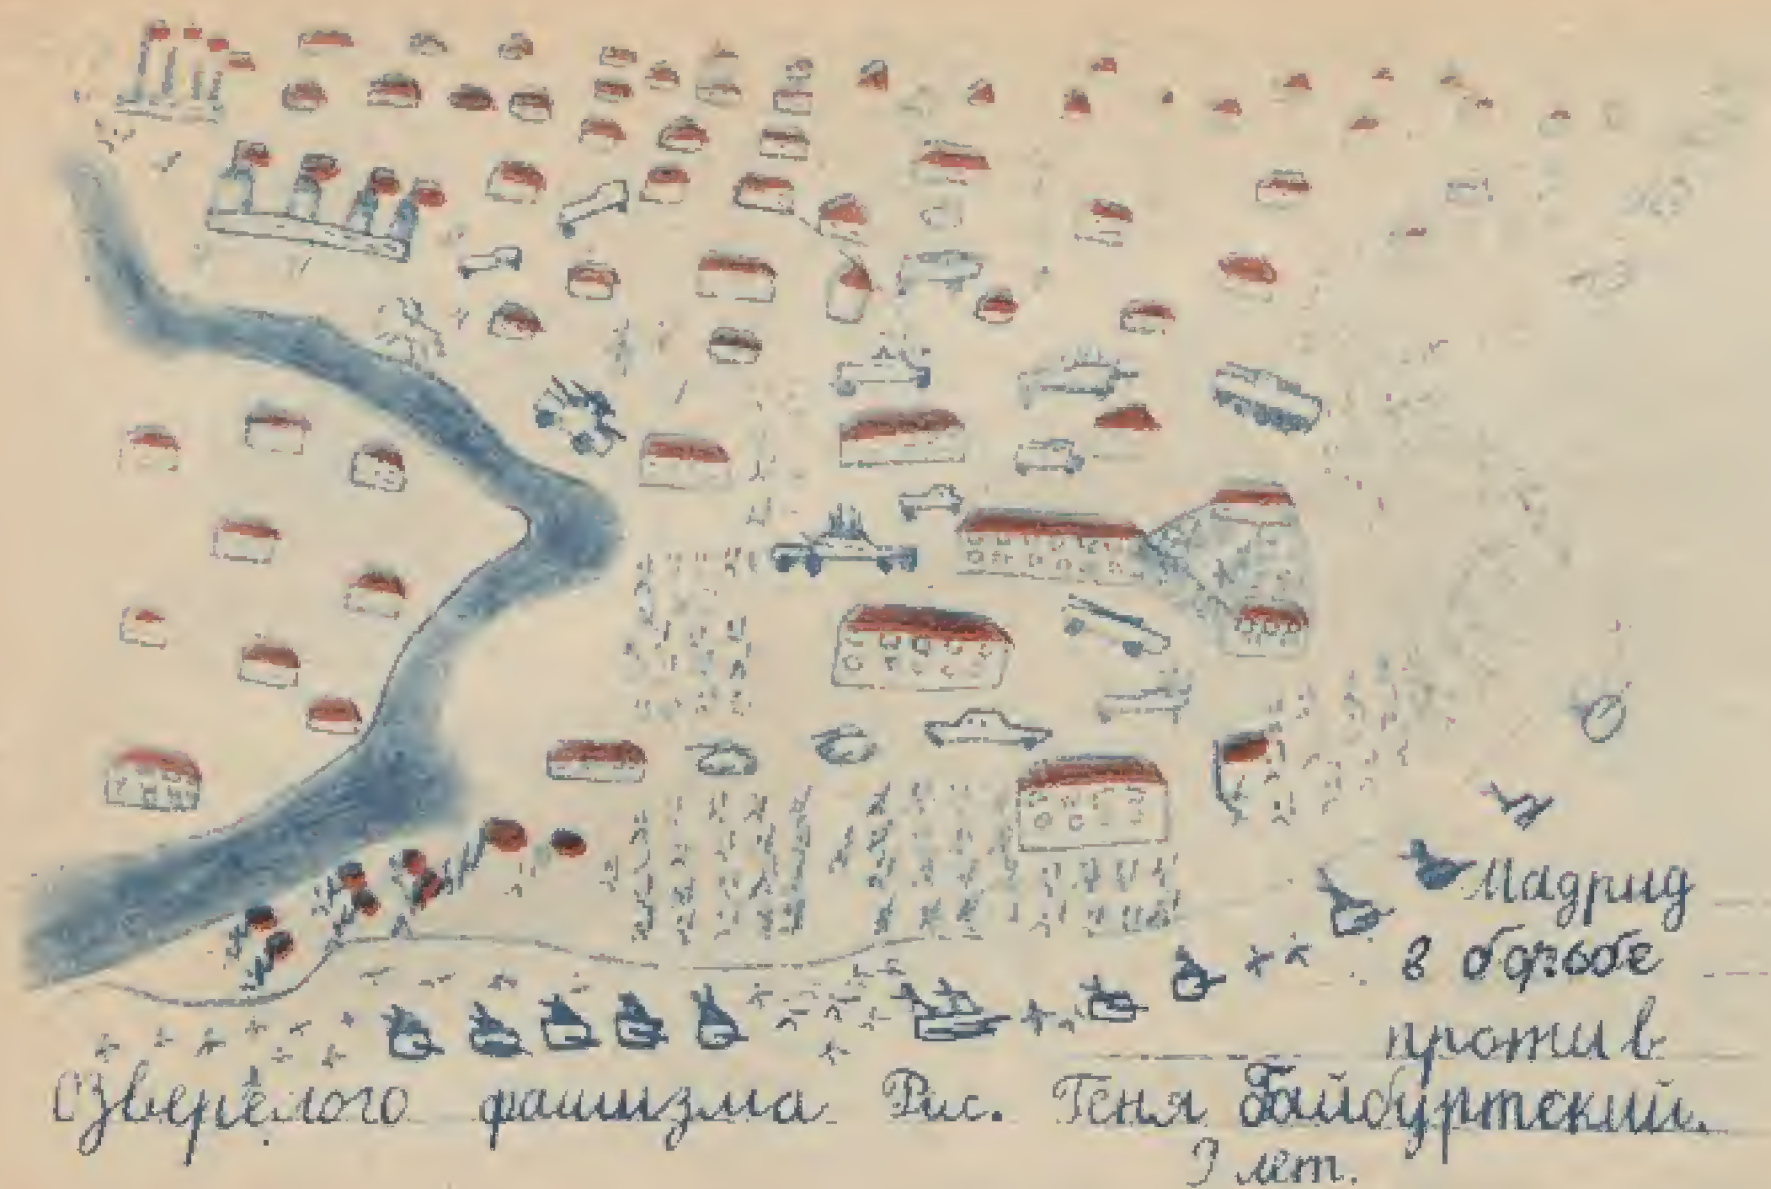 Мадрид
в борьбе
против
Озверелого фашизма Рис. Геня Гайбуртский.
9 лет.